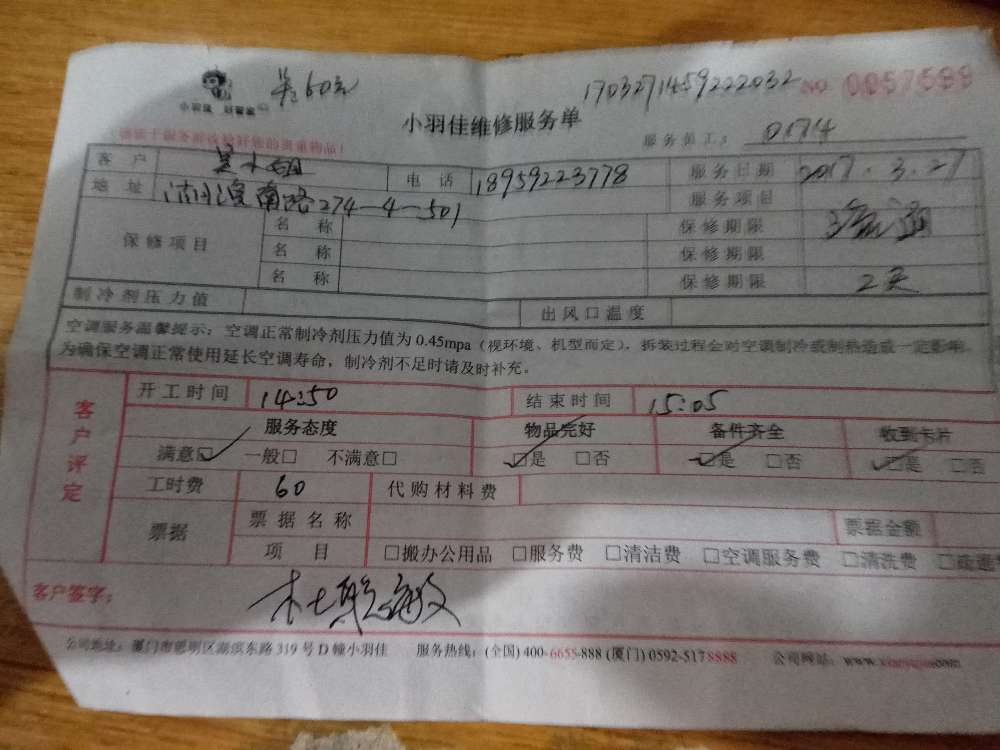 吴:60元
1703271459222032 NO 0057588
小羽佳 好管家
小羽佳维修服务单
服务员工: 0174
客户 吴小姐 电话 18959223778 服务日期 2017.3.27
地址 湖滨南路274-4-501 服务项目
保修项目 名称 保修期限
名称 保修期限
名称 保修期限 2天
制冷剂压力值 出风口温度
空调服务温馨提示:空调正常制冷剂压力值为 0.45mpa(视环境、机型而定),拆装过程会对空调制冷或制热造成一定影响,
为确保空调正常使用延长空调寿命,制冷剂不足时请及时补充。
客户评定
开工时间 14:50 结束时间 15:05
服务态度 物品完好 备件齐全 收到卡片
满意☑ 一般□ 不满意□ ☑是 □否 ☑是 □否 ☑是 □否
工时费 60 代购材料费
票据 票据名称 票据金额
项目 □搬办公用品 □服务费 □清洁费 □空调服务费 □清洗费
客户签字:
公司地址:厦门市思明区湖滨东路 319 号 D 幢小羽佳 服务热线:(全国) 400-6655-888 (厦门) 0592-5178888 公司网站: